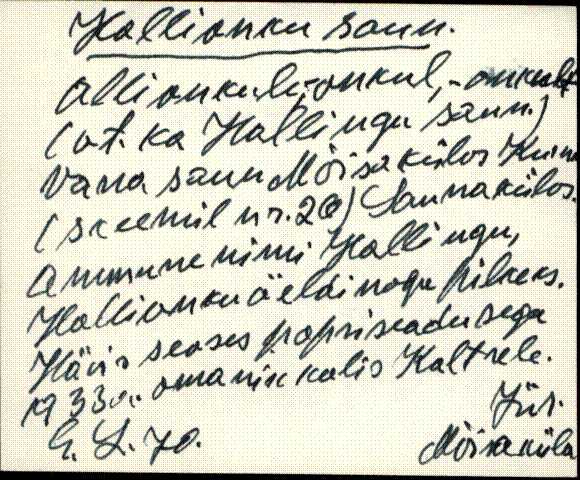 Hallionku saun.
Allionkul, -onkul, -onkult
(vt. ka Hallingu saun.)
Vana saun Mõisakülas
(skeemil nr. 20) Saunakülas.
Ammune nimi Hallingu,
Hallionku öeldi nagu pilkeks.
Hävis seoses popsiseadusega
1933.a. omanik kolis Kaltrele.
Jür.
E. L. 70. Mõisaküla